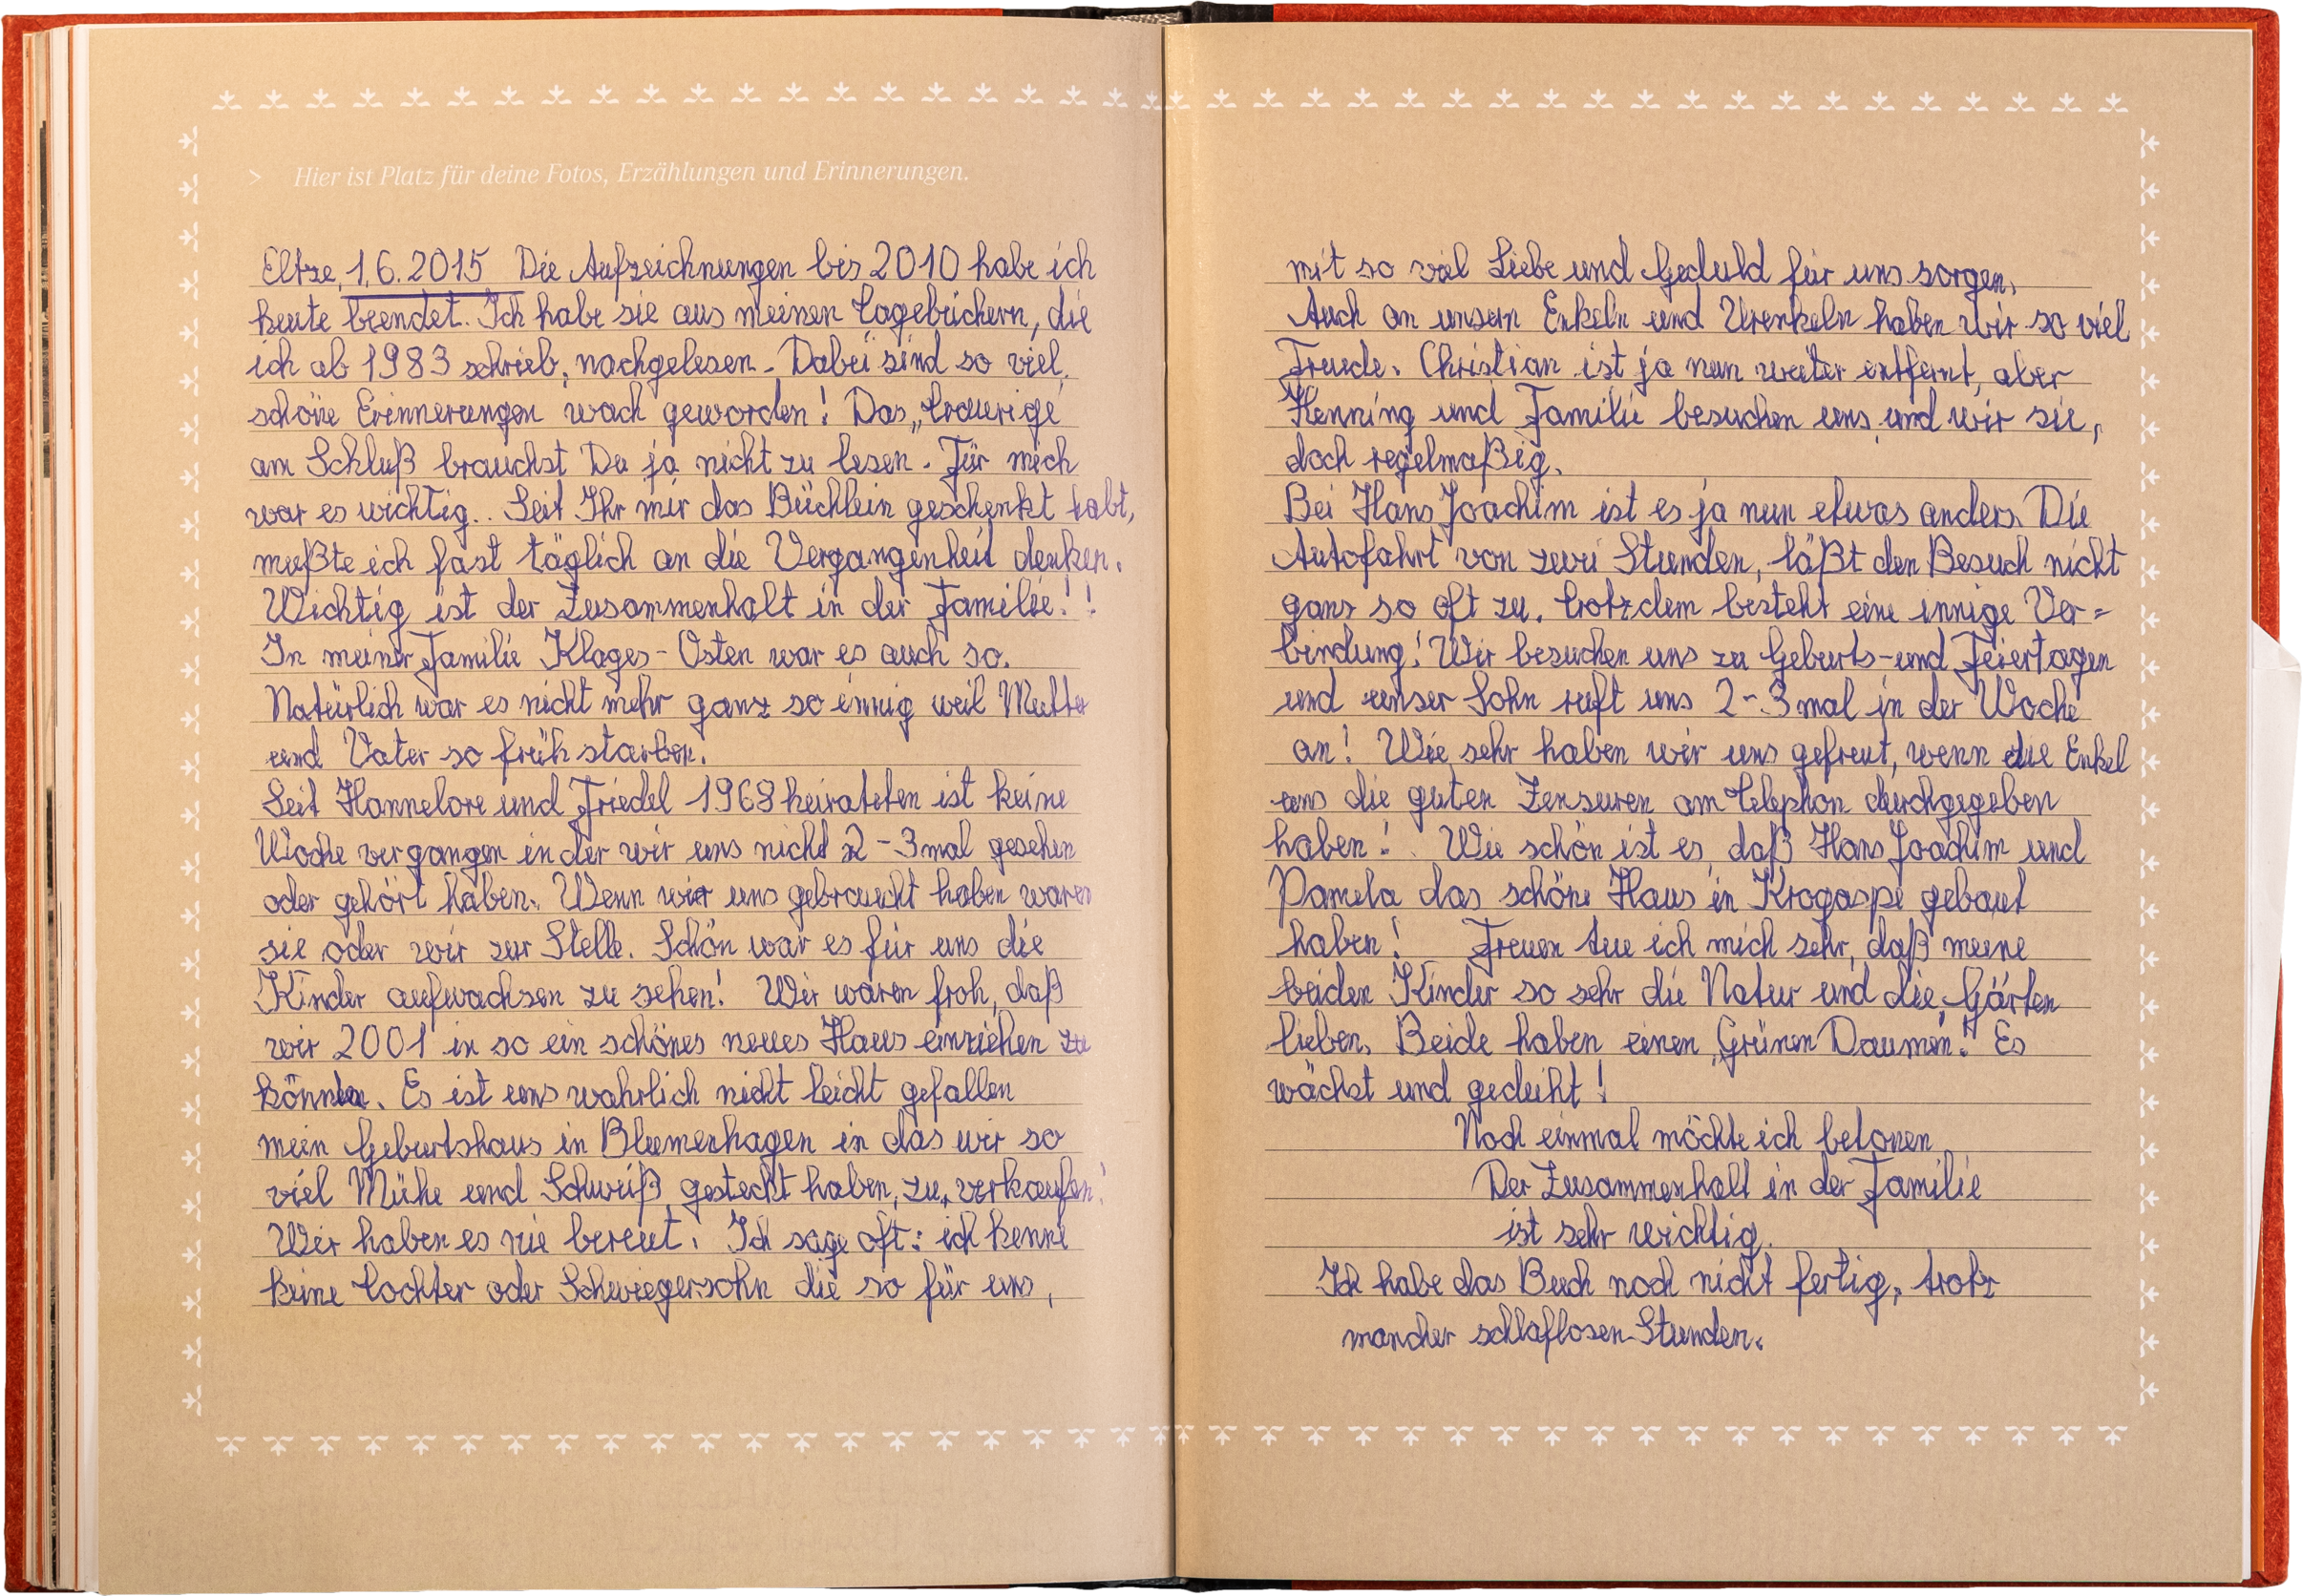 > Hier ist Platz für deine Fotos, Erzählungen und Erinnerungen.
Eltze, 1.6.2015 Die Aufzeichnungen bis 2010 habe ich
heute beendet. Ich habe sie aus meinen Tagebüchern, die
ich ab 1983 schrieb, nachgelesen. Dabei sind so viel
schöne Erinnerungen wach geworden! Das „Traurige
am Schluß brauchst Du ja nicht zu lesen. Für mich
war es wichtig.. Seit Ihr mir das Büchlein geschenkt habt,
mußte ich fast täglich an die Vergangenheit denken.
Wichtig ist der Zusammenhalt in der Familie!!
In meiner Familie Klages-Osten war es auch so.
Natürlich war es nicht mehr ganz so innig weil Mutter
und Vater so früh starben.
Seit Hannelore und Friedel 1968 heirateten ist keine
Woche vergangen in der wir uns nicht 2-3mal gesehen
oder gehört haben. Wenn wir uns gebraucht haben waren
sie oder wir zur Stelle. Schön war es für uns die
Kinder aufwachsen zu sehen! Wir waren froh, daß
wir 2001 in so ein schönes neues Haus einziehen zu
können. Es ist uns wahrlich nicht leicht gefallen
mein Geburtshaus in Blumenhagen in das wir so
viel Mühe und Schweiß gesteckt haben, zu verkaufen!
Wir haben es nie bereut! Ich sage oft: ich kenne
keine Tochter oder Schwiegersohn die so für uns,
mit so viel Liebe und Geduld für uns sorgen.
Auch an unsern Enkeln und Urenkeln haben wir so viel
Freude. Christian ist ja nun weiter entfernt, aber
Henning und Familie besuchen uns und wir sie,
doch regelmäßig.
Bei Hans Joachim ist es ja nun etwas anders. Die
Autofahrt von zwei Stunden, läßt den Besuch nicht
ganz so oft zu. Trotzdem besteht eine innige Ver=
bindung! Wir besuchen uns zu Geburts-und Feiertagen
und unser Sohn ruft uns 2-3mal in der Woche
an! Wie sehr haben wir uns gefreut, wenn die Enkel
uns die guten Zensuren am Telephon durchgegeben
haben! Wie schön ist es, daß Hans Joachim und
Pamela das schöne Haus in Krogaspe gebaut
haben! Freuen tue ich mich sehr, daß meine
beiden Kinder so sehr die Natur und die Gärten
lieben. Beide haben einen „Grünen Daumen“! Es
wächst und gedeiht!
Noch einmal möchte ich betonen
Der Zusammenhalt in der Familie
ist sehr wichtig.
Ich habe das Buch noch nicht fertig, trotz
mancher schlaflosen Stunden.